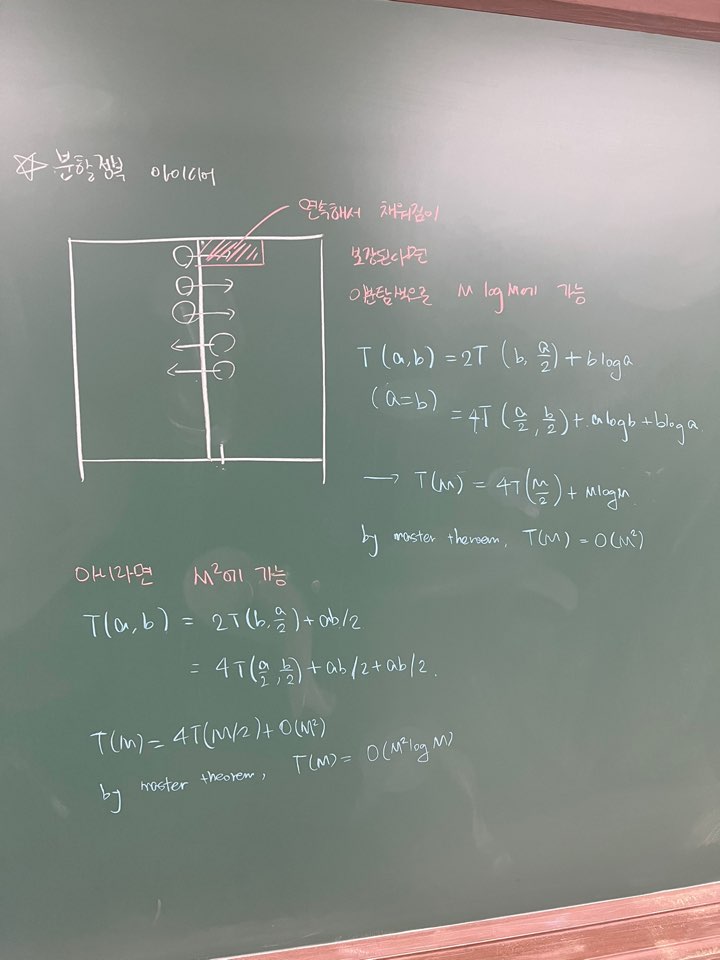 ☆ 분할정복 아이디어
연속해서 채워짐이
보장된다면
이분탐색으로 M log M에 가능
T(a,b) = 2T(b, a/2) + b log a
(a=b) = 4T(a/2, b/2) + a log b + b log a
→ T(M) = 4T(M/2) + M log M
by master theorem, T(M) = O(M²)
아니라면 M²에 가능
T(a,b) = 2T(b, a/2) + ab/2
= 4T(a/2, b/2) + ab/2 + ab/2.
T(M) = 4T(M/2) + O(M²)
by master theorem, T(M) = O(M² log M)